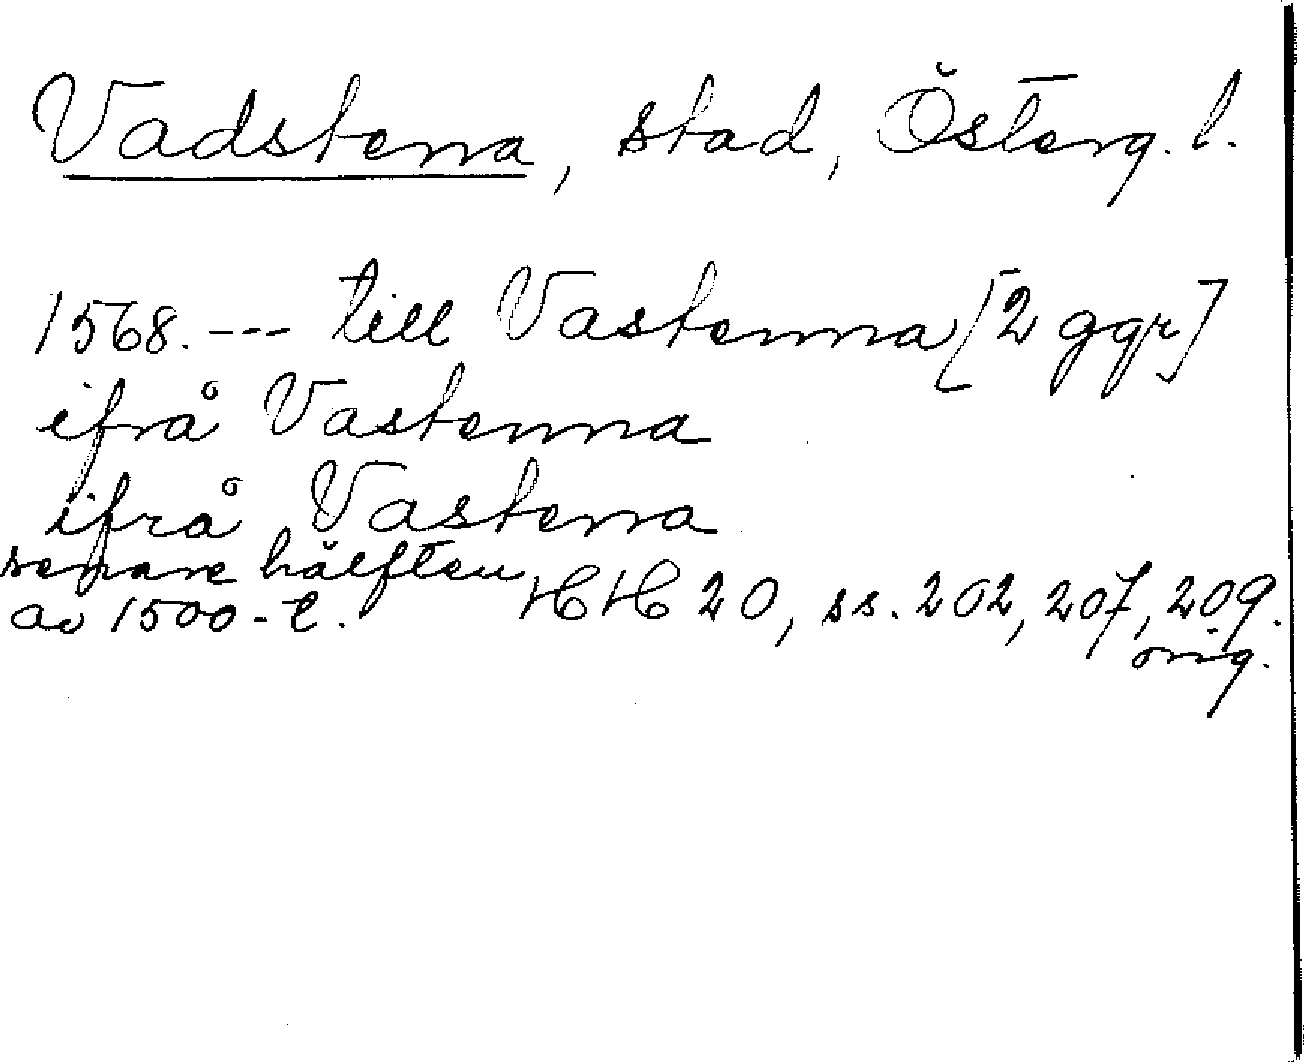 Vadstena, stad, Österg. l.
1568. --- till Vastenna [2 ggr]
ifrå Vastenna
ifrå Vastena
senare hälften
av 1500-t. HH 20, ss. 202, 207, 209.
orig.